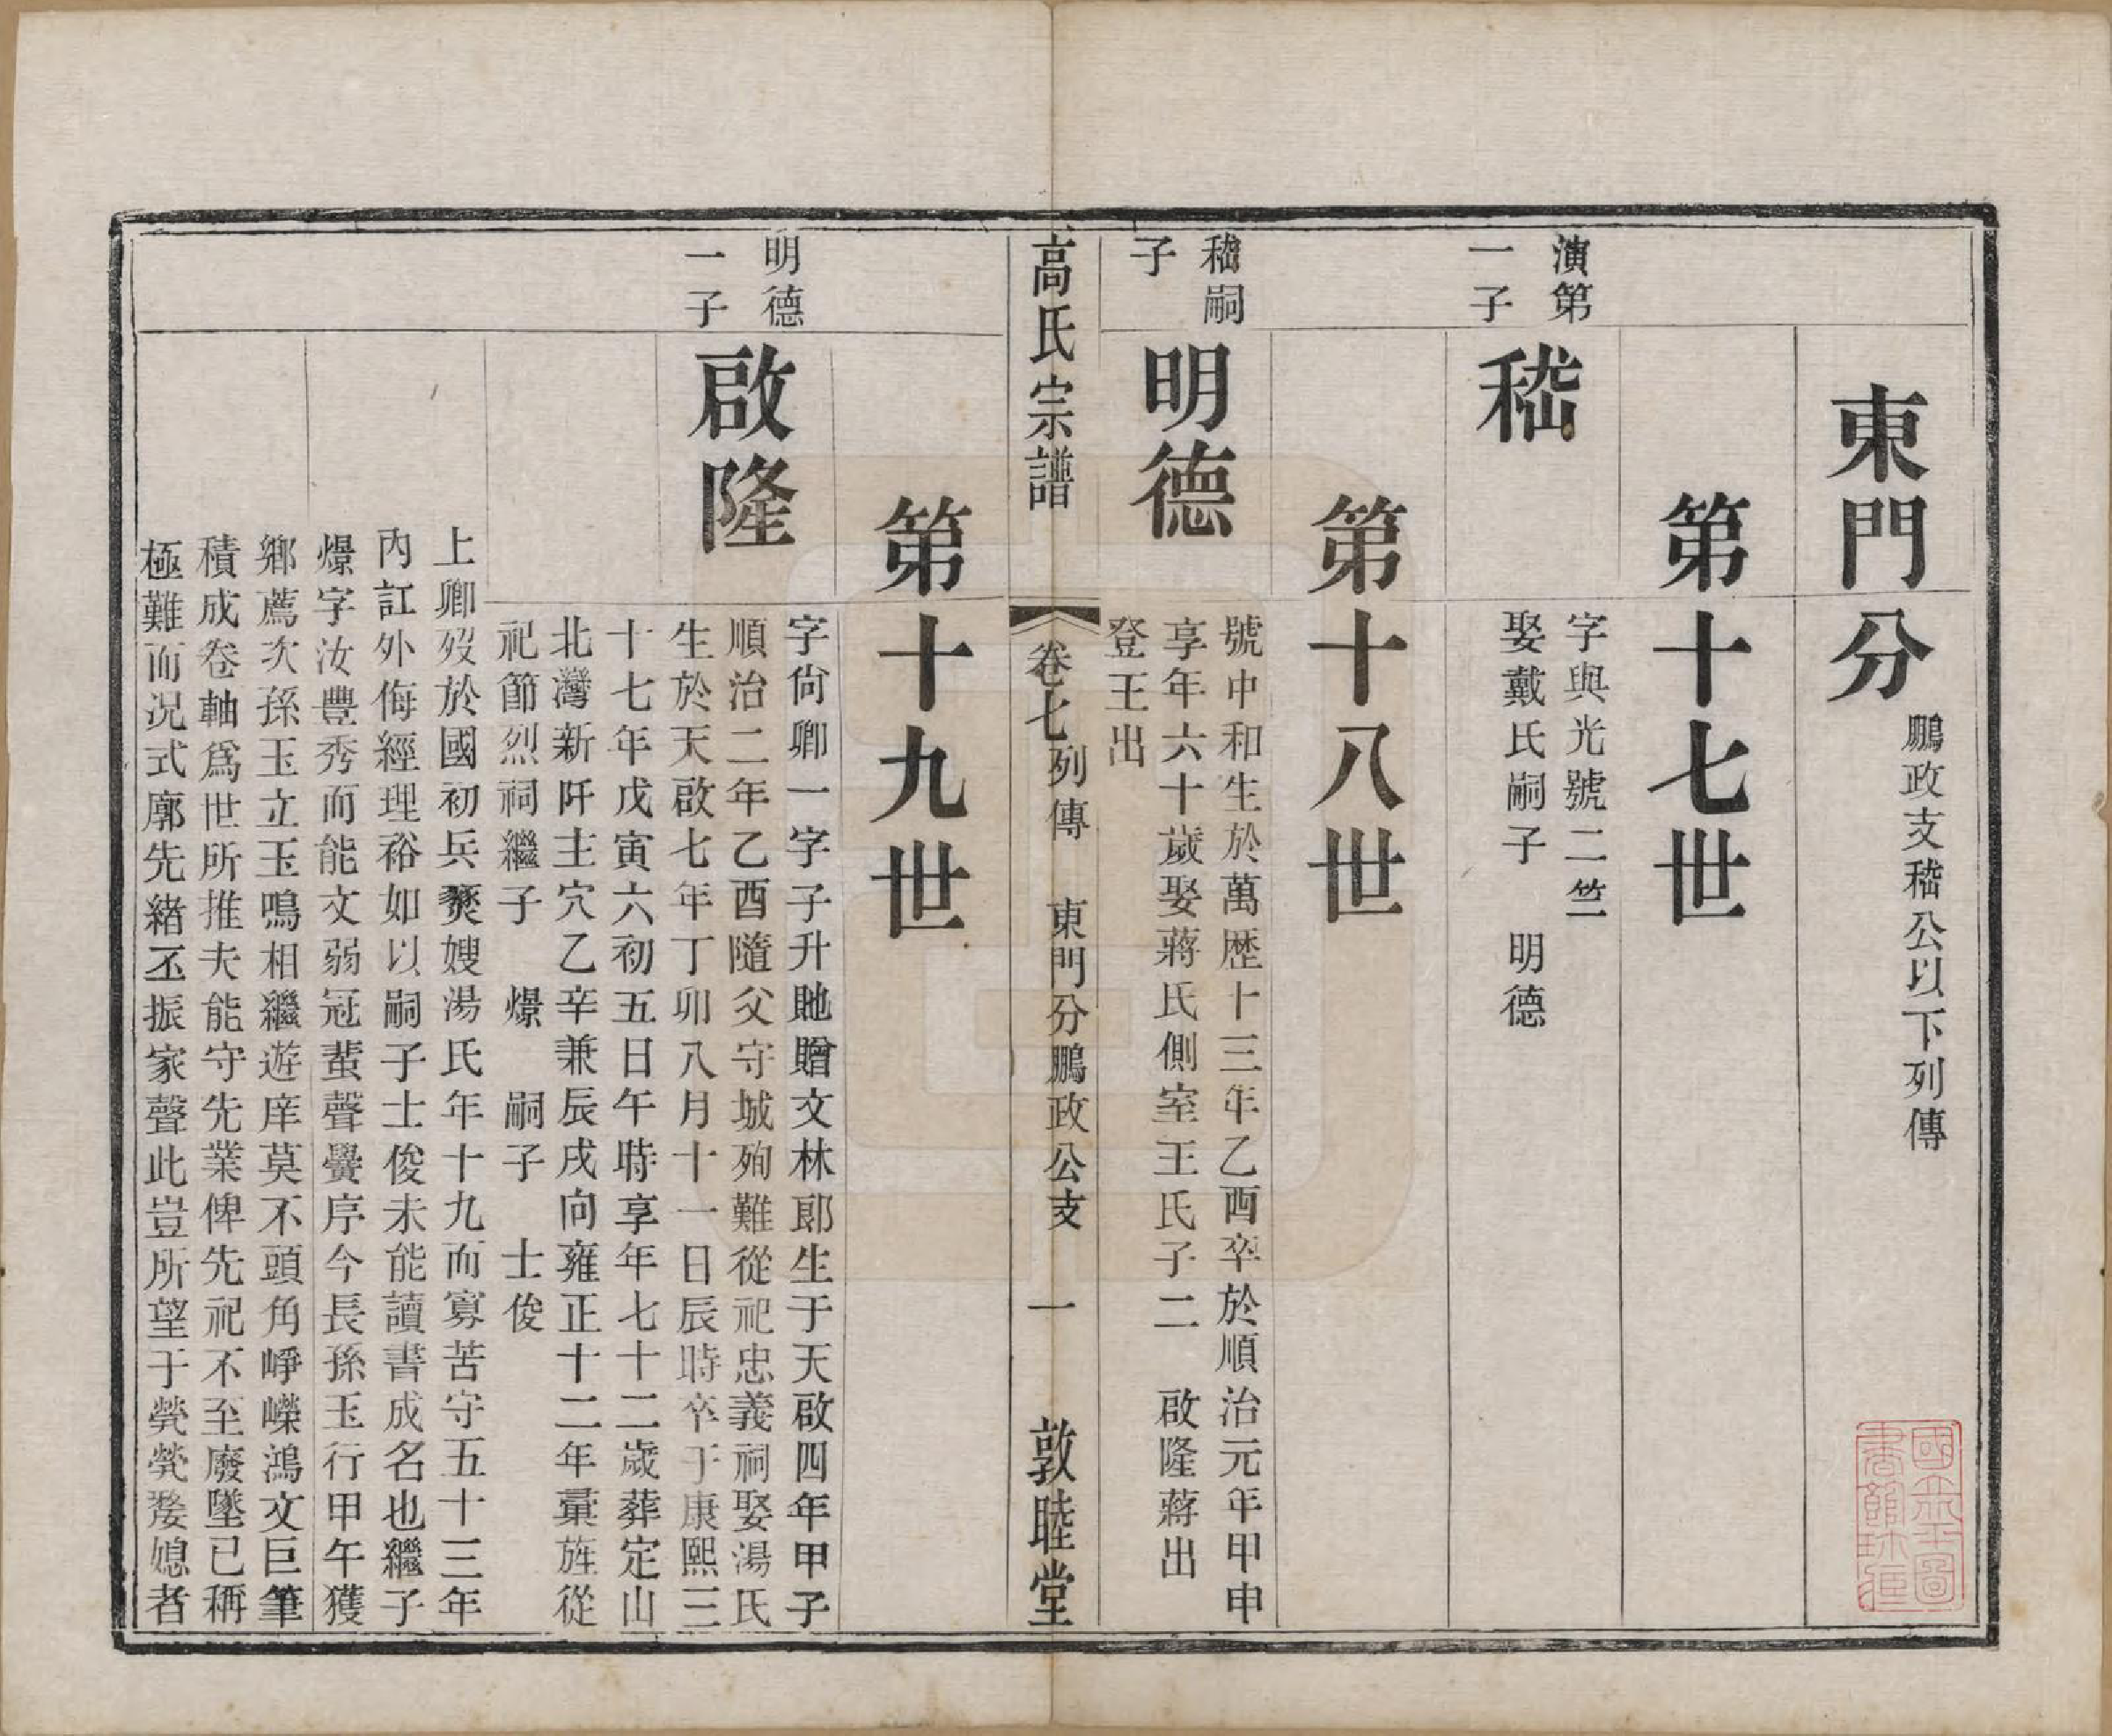 東門分
鵬政支嵇公以下列傳
第十七世
演第
一子
嵇
字與光號二竺
娶戴氏嗣子　明德
第十八世
嵇嗣
子
明德
號中和生於萬歷十三年乙酉卒於順治元年甲申
享年六十歲娶蔣氏側室王氏子二　啟隆蔣出
登王出
高氏宗譜
卷七列傳　東門分鵬政公支　一　敦睦堂
第十九世
明德
一子
啟隆
字尙卿一字子升貤贈文林郎生于天啟四年甲子
順治二年乙酉隨父守城殉難從祀忠義祠娶湯氏
生於天啟七年丁卯八月十一日辰時卒于康熙三
十七年戊寅六初五日午時享年七十二歲葬定山
北灣新阡主穴乙辛兼辰戌向雍正十二年彙旌從
祀節烈祠繼子　燝　嗣子　士俊
上卿歿於國初兵燹嫂湯氏年十九而寡苦守五十三年
內訌外侮經理裕如以嗣子士俊未能讀書成名也繼子
燝字汝豐秀而能文弱冠蜚聲黌序今長孫玉行甲午獲
鄉薦次孫玉立玉鳴相繼遊庠莫不頭角崢嶸鴻文巨筆
積成卷軸爲世所推夫能守先業俾先祀不至廢墜已稱
極難而况式廓先緒丕振家聲此豈所望于煢煢嫠媳者